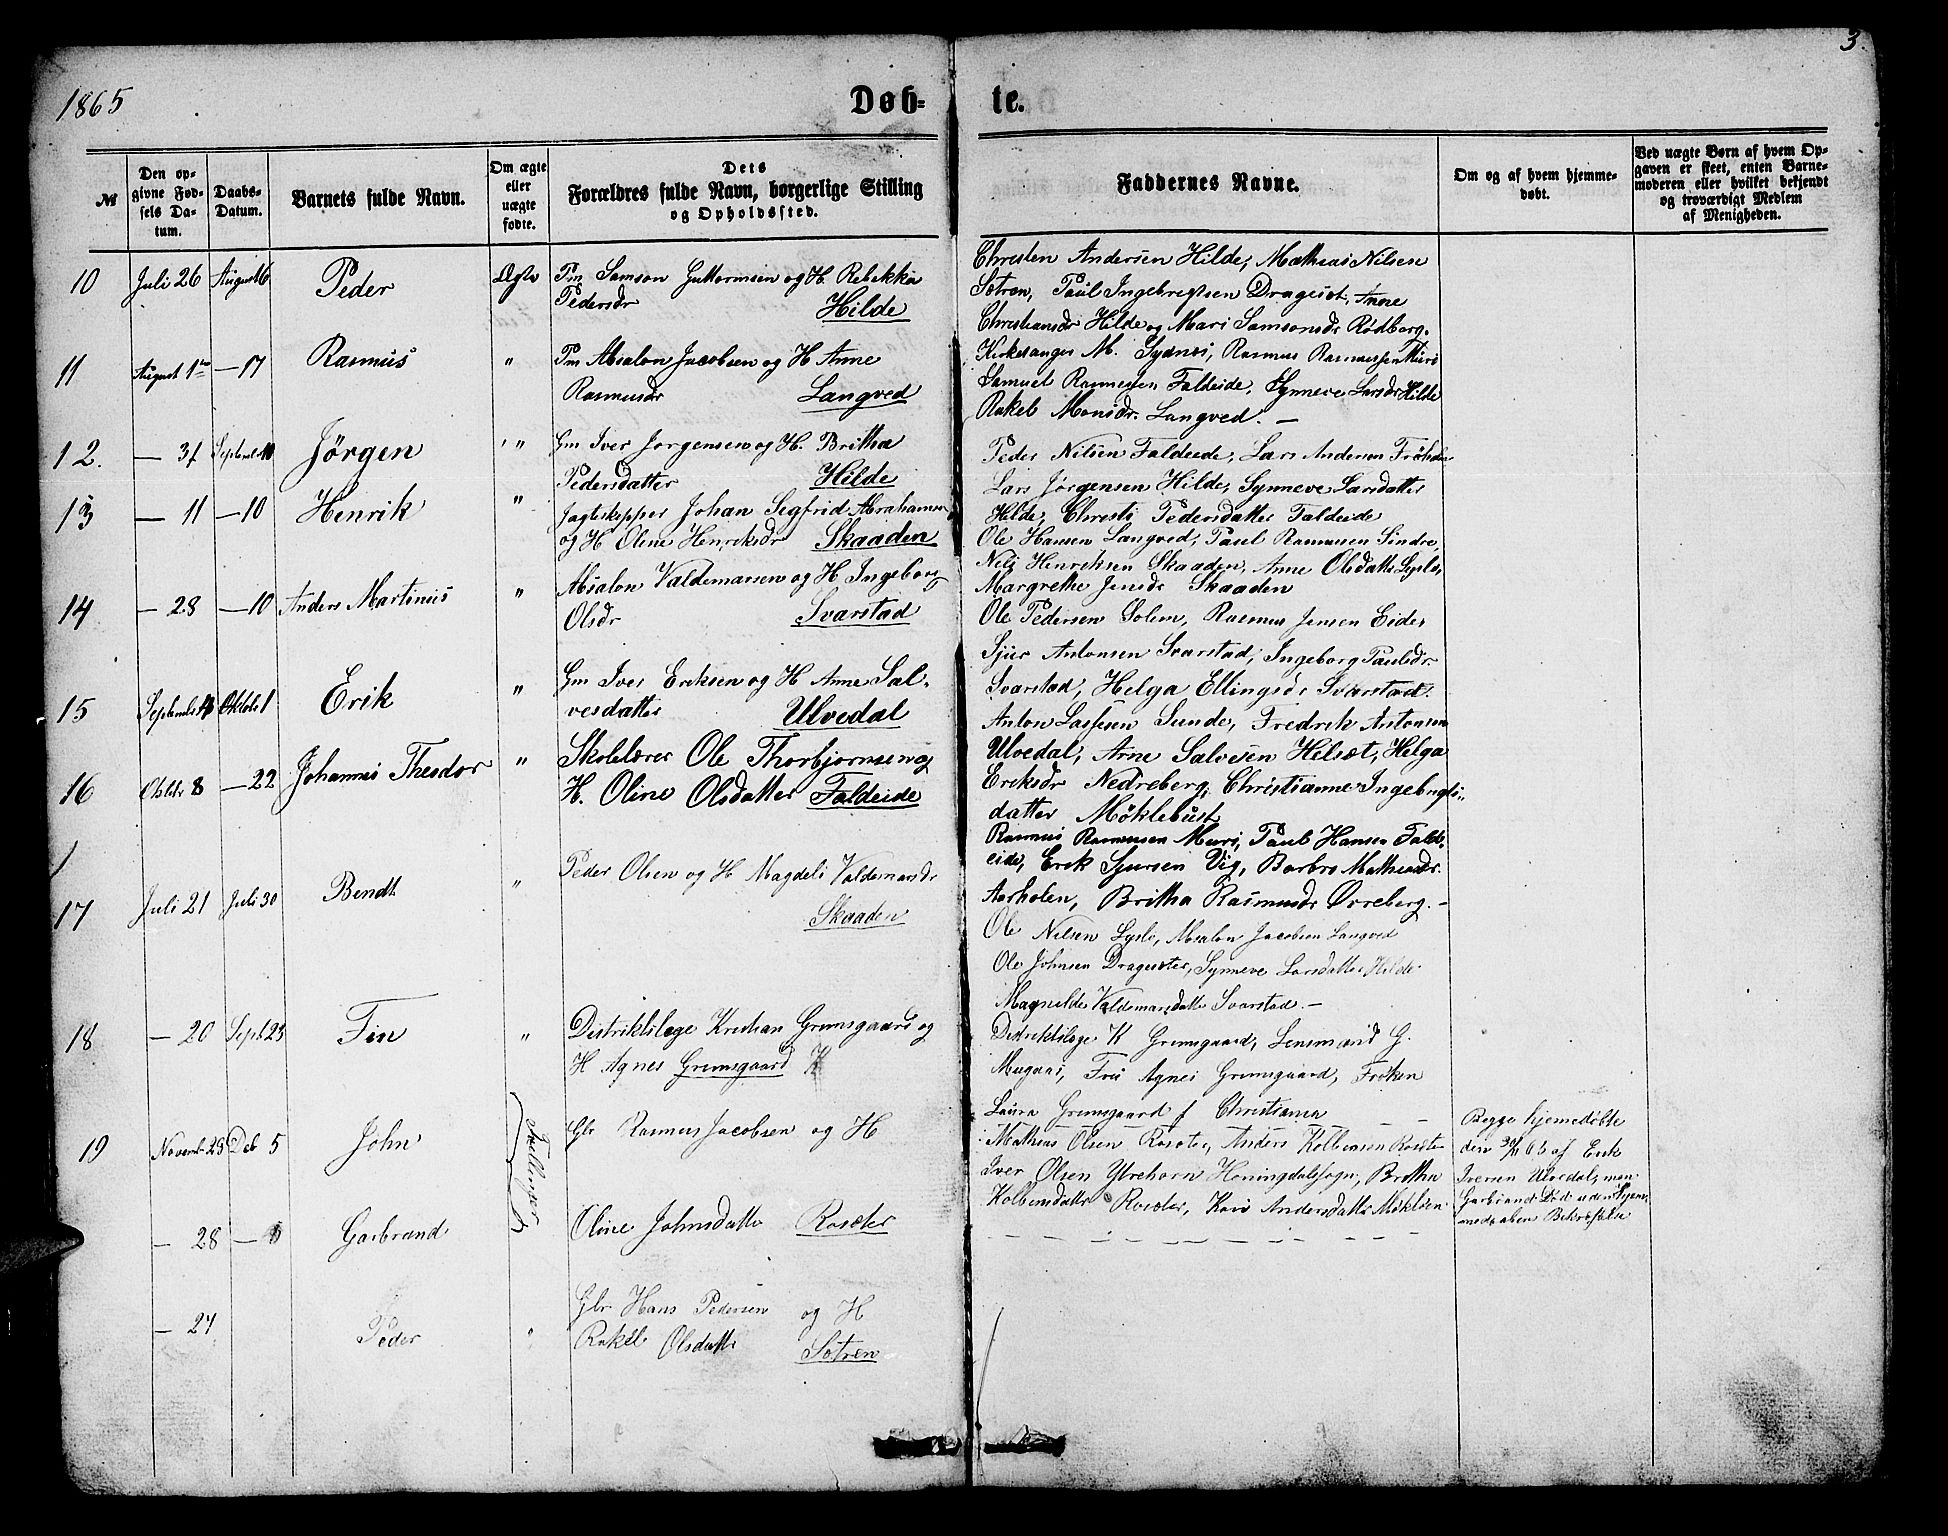 3.
1865
Døb-
te.
№
Den op-
givne Fød-
sels Da-
tum.
Daabs-
Datum.
Barnets fulde Navn.
Om ægte
eller
uægte
fødte.
Dets
Forældres fulde Navn, borgerlige Stilling
og Opholdssted.
Faddernes Navne.
Om og af hvem hjemme-
døbt.
Ved uægte Børn af hvem Op-
gaven er skeet, enten Barne-
moderen eller hvilket bekjendt
og troværdigt Medlem
af Menigheden.
10 Juli 26 August 6 Peder Ægte Pm Samson Guttormsen og H. Rebekka
Pedersdr Hilde
Christen Andersen Hilde, Mathias Nilsen
Sætren, Paul Ingebregtsen Dragesæt, Anne
Christiansdr Hilde og Mari Samsonsdr Rødberg.
11 August 1ste — 17 Rasmus " Pm Absalon Jacobsen og H Anne
Rasmusdr Langved
Kirkesanger M. Sydnes, Rasmus Rasmussen Muri
Samuel Rasmussen Faldeide, Synneve Larsdr Hilde
Rakel Monsdr. Langved. —
12. — 31 Septembr 10 Jørgen " Gm Iver Jørgensen og H. Britha
Pedersdatter Hilde
Peder Nilsen Faldeide, Lars Andersen Frøholm
Lars Jørgensen Hilde, Synneve Larsdatter
Hilde, Christi Pedersdatter Faldeide
13 — 11 — 10 Henrik " Jagteskipper Johan Segfrid Abrahamsen
og H Oline Henriksdr Skaaden
Ole Hansen Langved, Paul Rasmusen Sindre,
Nils Henriksen Skaaden, Anne Olsdatter Lyslo,
Margrethe Jensdr Skaaden
14 — 28 — 10 Anders Martinus " Absalon Valdemarsen og H Ingeborg
Olsdr Svarstad
Ole Pedersen Solem, Rasmus Jensen Eide,
Sjur Antonsen Svarstad, Ingeborg Paulsdr.
Svarstad, Helga Ellingsdr Svarstad.
15 Septembr 14 Oktobr 1 Erik " Gm Iver Eriksen og H Anne Sal-
vesdatter Ulvedal
Anton Lassesen Sunde, Fredrik Antonsen
Ulvedal, Arne Salvesen Hilsæt, Helga
Eriksdr Nedreberg, Christianne Ingebrigts-
datter Møklebust
16 Oktobr 8 — 22 Johannes Theodor " Skolelærer Ole Thorbjørnsen og
H. Oline Olsdatter Faldeide
Rasmus Rasmusen Muri, Paul Hansen Fald-
eide, Erik Sjursen Vig, Barbro Mathiasdr.
Aarholen, Britha Rasmusdr Ørreberg. —
17 Juli 21 Juli 30 Bendt " Peder Olsen og H Magdeli Valdemarsdr
Skaaden
Ole Nilsen Lyslo, Absalon Jacobsen Langved
Ole Johnsen Dragesæter, Synneve Larsdatter Hilde
Magnilde Valdemarsdatter Svarstad. —
18 — 20 Sept. 23 Fin " Distriktslæge Kristian Grimsgaard og
H Agnes Grimsgaard
Distriktslæge K Grimsgaard, Lensmand G.
Mugaas, Fru Agnes Grimsgaard, Frøken
Laura Grimsgaard f Christiania
19 Novembr 28 Deb 5 John Tvillinger Gbr Rasmus Jacobsen og H
Mathias Olsen Rosæter, Anders Kolbensen Rosæter
Iver Olsen Ytrehorn Horningdalssogn, Britha
Kolbensdatter Rosæter, Kari Andersdatter Møklebu
Begge hjemedøbte
den 30/11 65 af Erik
Iversen Ulvedal, men
Garbrand Død uden Hjem-
medaaben Bekræftelse
— 28 — Garbrand
Oline Johnsdatter Rosæter
— 27 Peder " Gbr Hans Pedersen og H
Rakel Olsdatter Sætren